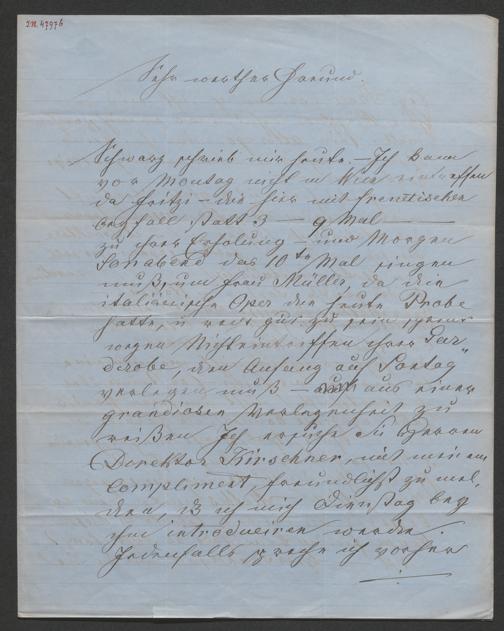 I.N. 47976
Sehr werther Freund.
Schwarz schrieb mir heute. – Ich kann
vor Montag nicht in Wien eintreffen
da Fritzi – die hier mit frenetischen
Beyfall statt 3 – 9 Mal
zu ihrer Erholung – und Morgen
Sonabend das 10te Mal singen
muß, um Frau Müller, da die
italiänische Oper die heute Probe
hatte, u recht gut zu sein
wegen Nichteintreffen ihrer Gar
derobe, den Anfang auf Sontag
verlegen muß – aus einer
grandiosen Verlegenheit zu
reißen. Ich ersuche Sie Herren
Direktor Kirschner, mit meinem
Compliment, freundlichst zu mel
den, ich mich Dienstag bey
ihm introduciren werde.
Jedenfalls spreche ich vorher